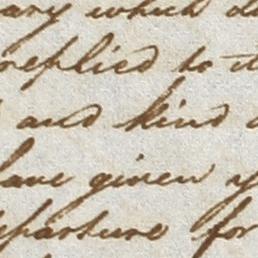 ary which d
replied to it
and kind
have given y
eparture for